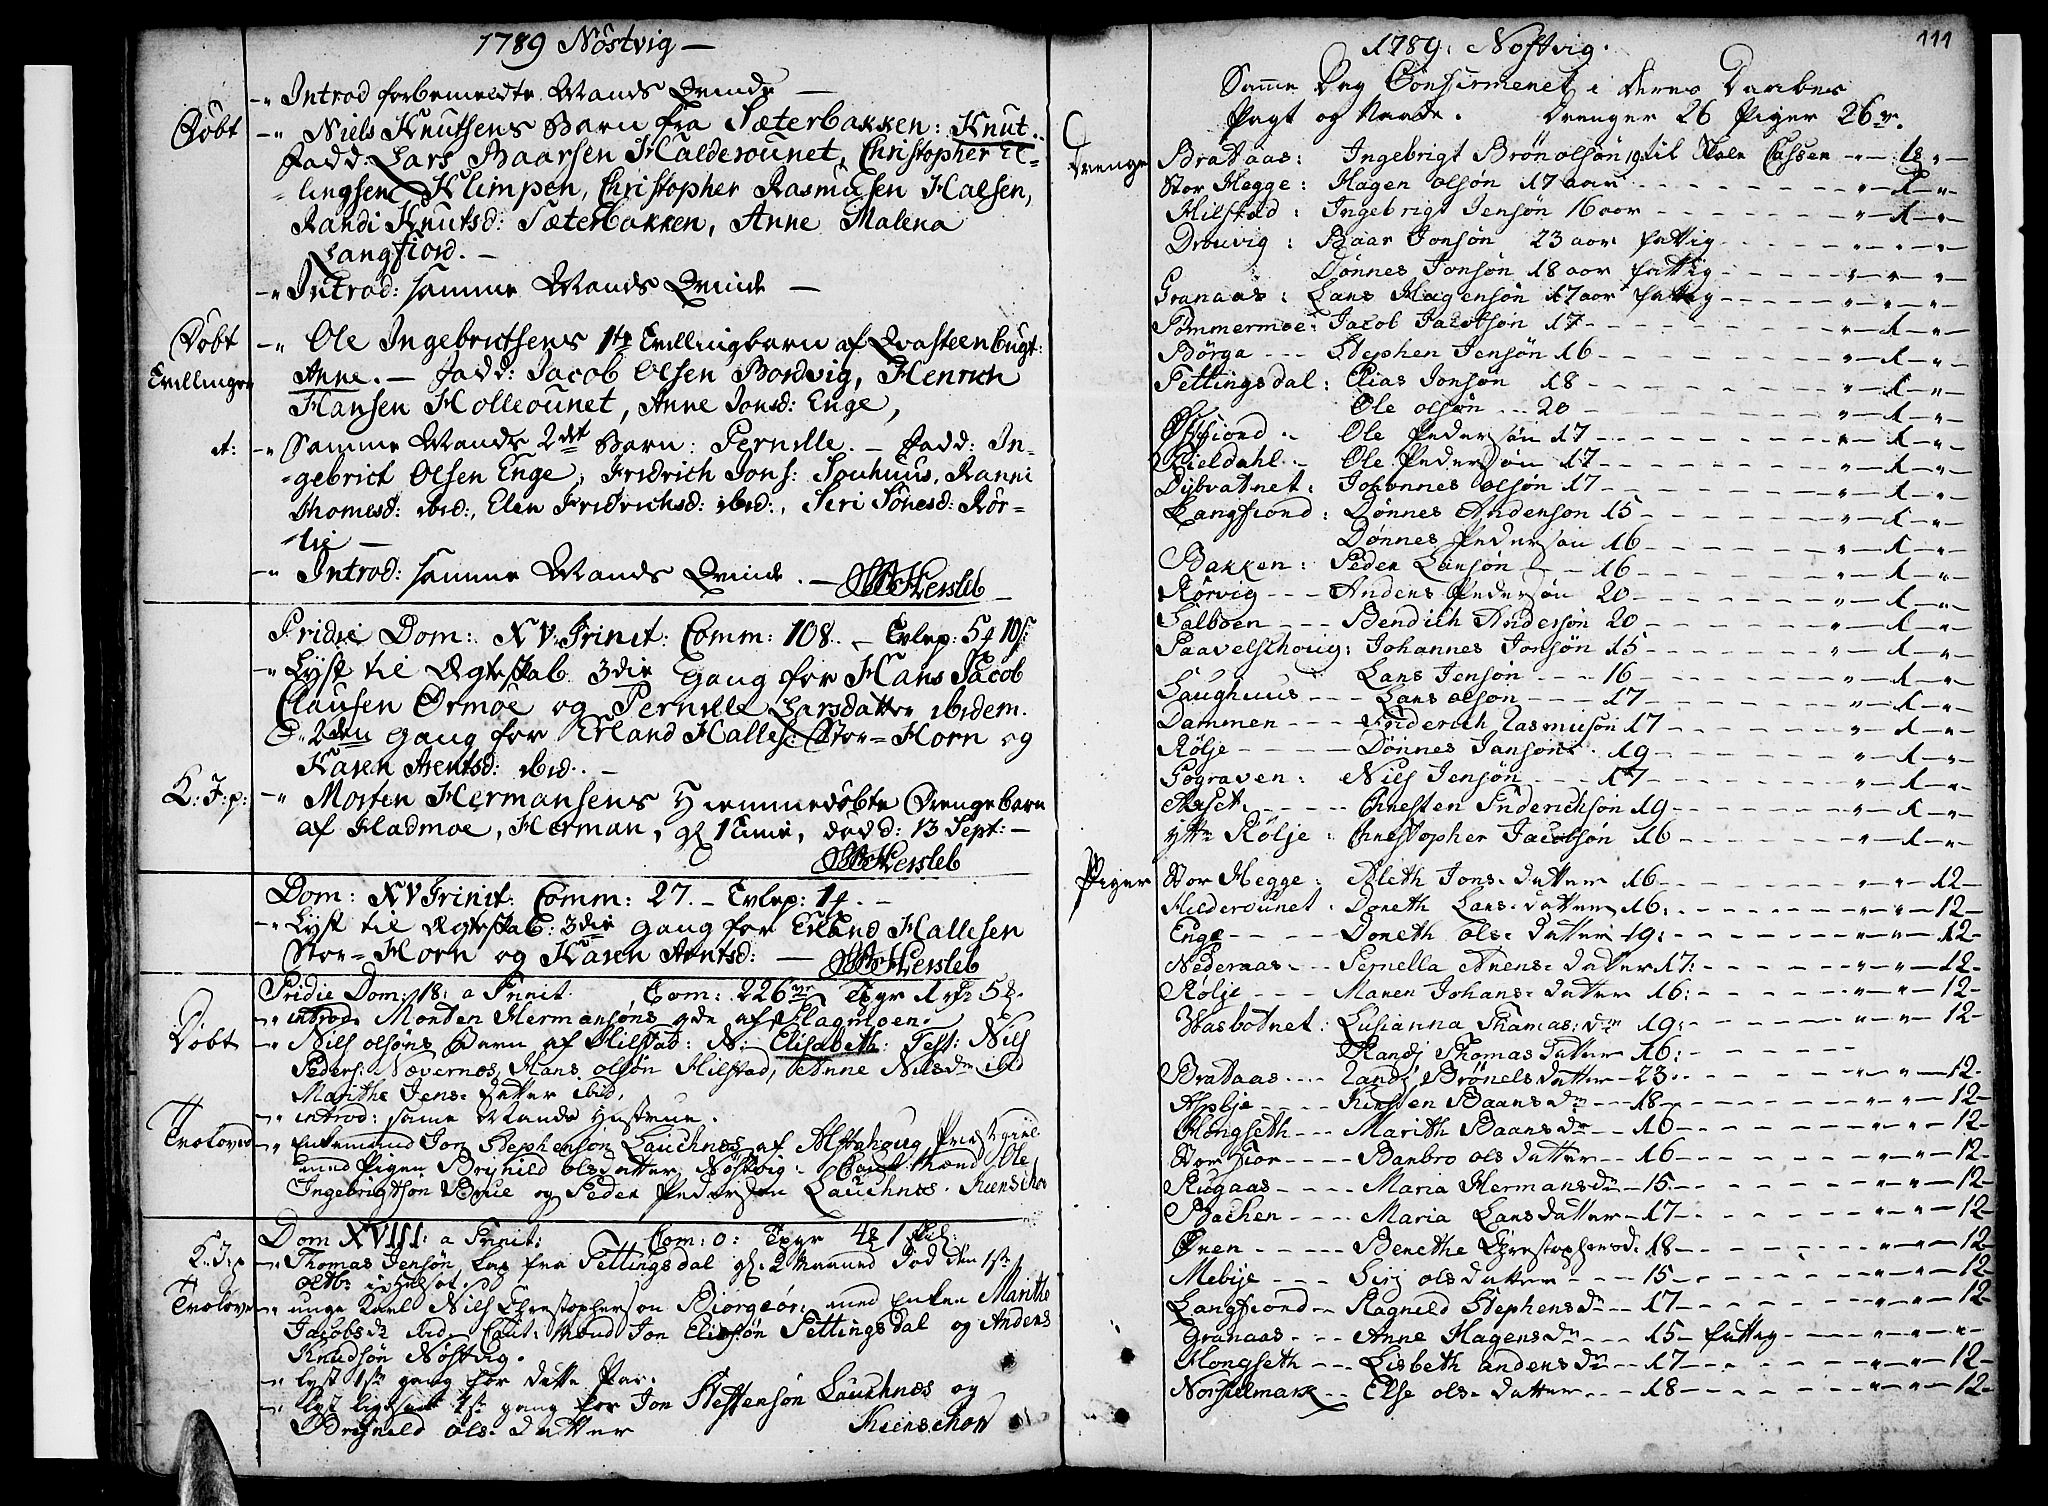 1789 Nöstvig —
-" Introd forbemeldte Mands Qvinde —
Döbt -" Niels Knutsens Barn fra Sæterbakken: Knut.
Fadd: Lars Baarsen Halderounet, Christopher El-
-lingsen Klimpen, Christopher Rasmussen Halsen,
Randi Knutsd: Sæterbakken, Anne Malena
Langfiord. —
-" Introd: samme Mands Qvinde —
Döbt -" Ole Ingebritsens 1te Tvillingbarn af Qvasteenbugt:
Tvillinger Anne. — Fadd: Jacob Olsen Bordvig, Henrich
Hansen Holleounet, Anne Jonsd: Enge,
-" Samme Mands 2det Barn: Pernille. — Fadd: In-
-gebrict Olsen Enge, Fridrich Jons: Souhuus, Ranni
Thomesd: ibid:, Elen Fridrichsd: ibid:, Siri Jönesd: Rör-
-" Introd: samme Mands Qvinde. — Hersleb
Pridie Dom: XV. Trinit: Comm: 108. —
-" Lyst til Ægteskab 3die Gang for Hans Jacob
Clausen Ørmoe og Pernille Larsdatter ibidem.
2den Gang for Erland Halles: Stor=Horn og
Karen Arentsd: ibid. —
K: J: p: -" Morten Hermansens Hiemmedöbte Drengebarn
af Hadmoe, Herman, gl 1 Time, död d: 13 Sept: —
Hersleb
Dom: XV Trinit: Comm: 27. —
-" Lyst til Ægteskab: 3die Gang for Erland Hallesen
Stor=Horn og Karen Arntsd: — Hersleb
Pridie Dom: 18: a Trinit. Com: 226
-" introd. Morten Hermansöns qde af Hagmoen.
Döbt -" Nils olsöns Barn af Hilstad: N: Elisabeth: Test: Nils
Peders: Nævernes, Hans olsön Hilstad, Anne Nilsdr ibd
Marithe Jens. datter ibid.
-" introd: same Mands Hustrue.
Trolovede -" Enkemand Jon Stephenson Lauchnes af Alstahoug Præstegield
med Pigen Brynild olsdatter Nöstvig: Caut Mænd Ole
Ingebrigtsön Brue og Peder Pedersen Lauchnes. Kienschow
Dom XVIII: a Trinit: Com: 0:
K: J: p -" Thomas Jensön Lap fra Tettingsdal gl: 2 Maaned död den 1ste
Trolovede -" unge Karl Nils Christopherson Biörgeör: med Enken Marithe
Jacobsdr ibid. Caut: Mænd Jon Eliesön Tettingsdal og Anders
Knudsön Nöstvig.
-" lyst 1ste gang for dette Par.
-" lyst ligesaa 1ste gang for Jon Steffensön Lauchnes og
Brynild ols. datter Kienschow

1789: Nöstvig. 111
Samme Dag Confirmeret i deres Daabes
Pagt og Naade. Drenger 26 Piger 26
Drenge Bradaas: Ingebrigt Brönolsön 19 til Skole Cassen "— 18 "—
Stor Hegge: Hagen olsön 17 aar - - - "—1—"—
Hilstad: Ingebrigt Jensön 16 aar - - - "—1—"—
Drouvig: Baar Jonsön 23 aar fattig - - - "—"—"—
Dönnes Jonsön 18 aar fattig - - - "—"—"—
Granaas: Lars Hagensön 17 aar fattig - - - "—"—"—
Tömmermoe: Jacob Jacobsön 17 - - - "—1—"—
Börga - - - Stephen Jensön 16 - - - "—1—"—
Tettingsdal: Elias Jonsön 18 - - - "—1—"—
Ole olsön - - 20 - - - "—1—"—
Ole Pedersön 17 - - - "—1—"—
Kieldahl - Ole Pedersön 17 - - - "—1—"—
Dybvatnet: Johannes olsön 17 - - - "—1—"—
Langfiord: Dönnes Andersön 15 - - - "—1—"—
Dönnes Pedersön 16 - - - "—1—"—
Bakken: Peder Larsön - - 16 - - - "—1—"—
Rörvig - - - Anders Pedersön 20 - - - "—1—"—
Salboen - - - Bendich Andersön 20 - - - "—1—"—
Paavelschoug: Johannes Jonsön 15 - - - "—1—"—
Lars Jensön - - - 16 - - - "—1—"—
Laughuus - - - Lars olsön - - - 17 - - - "—1—"—
Dammen - - - Friderich Rasmusön 17 - - - "—1—"—
Rölje - - - Dönnes Jansön 19 - - - "—1—"—
Gograven: Nils Jensön - - - 17 - - - "—1—"—
Christen Friderichsön 19 - - - "—1—"—
ytte Rölje: Christopher Jacobsön 16 - - - "—1—"—
Piger Stor Hegge: Aleth Jons. datter 16 - - - "—"—12—
Hilderounet: Doreth Lars. datter 16: - - - "—"—12—
Enge - - - Doreth ols. datter 19: - - - "—"—12—
Nederaas - - - Pernella Arens. datter 17: - - - "—"—12—
Rölje - - - Maren Johans. datter 16: - - - "—"—12—
Wasbotnet: Lusianna Thomas: dr 19: - - - "—"—12—
Randj Thomas datter 16: - - -
Bradaas - - - Randj Brönels datter 23 - - - "—"—12—
Kirsten Baars dr - - 18 - - - "—"—12—
Hongseth - - - Marith Baars dr - - 16 - - - "—"—12—
Stor fior - - - Barbro ols datter - - 16 - - - "—"—12—
Rugaas - - - Maria Hermansdr - 15 - - - "—"—12—
Bachen - - - Maria Lars datter - 17 - - - "—"—12—
Ören - - - Berethe Christophersd: 18 - - - "—"—12—
Mebije - - - Sirj ols datter - - - 15 - - - "—"—12—
Langfiord - - Ragnild Stephens dr - - 17 - - - "—"—12—
Granaas - - - Anne Hagens dr - - - 15 - fattig - - - "—"—"—
Hongseth - - - Lisbeth anders dr - - 17 - - - "—"—12—
Norskelmark - - Else ols. datter - - - 18 - - - "—"—12—